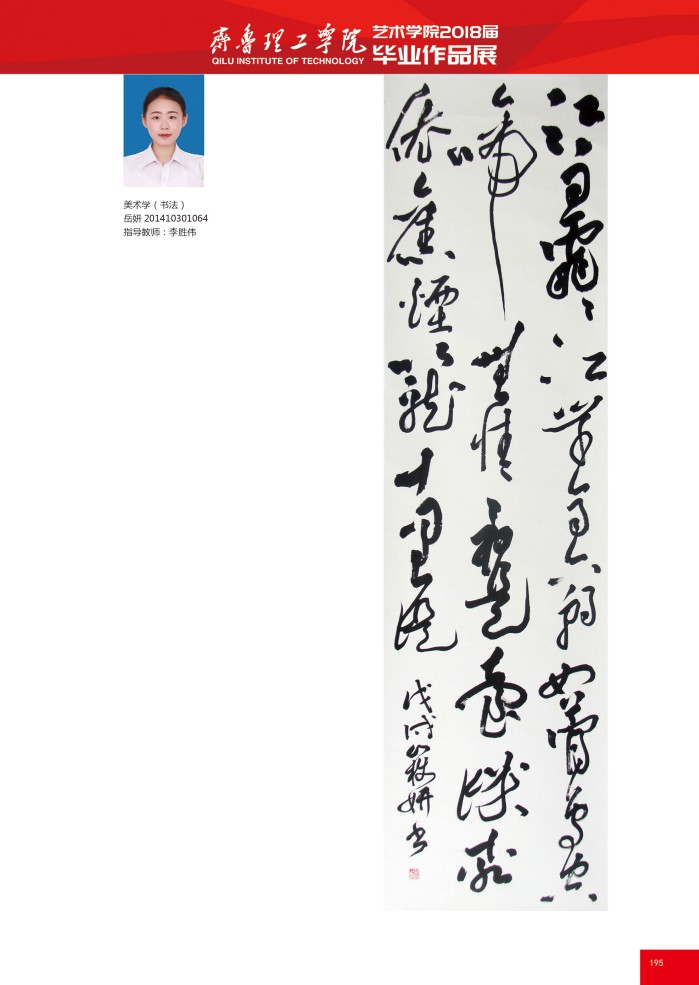 齊魯理工學院
QILU INSTITUTE OF TECHNOLOGY
艺术学院2018届
毕业作品展
美术学（书法）
岳妍 201410301064
指导教师：李胜伟
江雨霏〻江草齊六朝如夢鳥空
啼無情最是臺城柳
依舊煙籠十里堤
戊戌嶽妍書
195